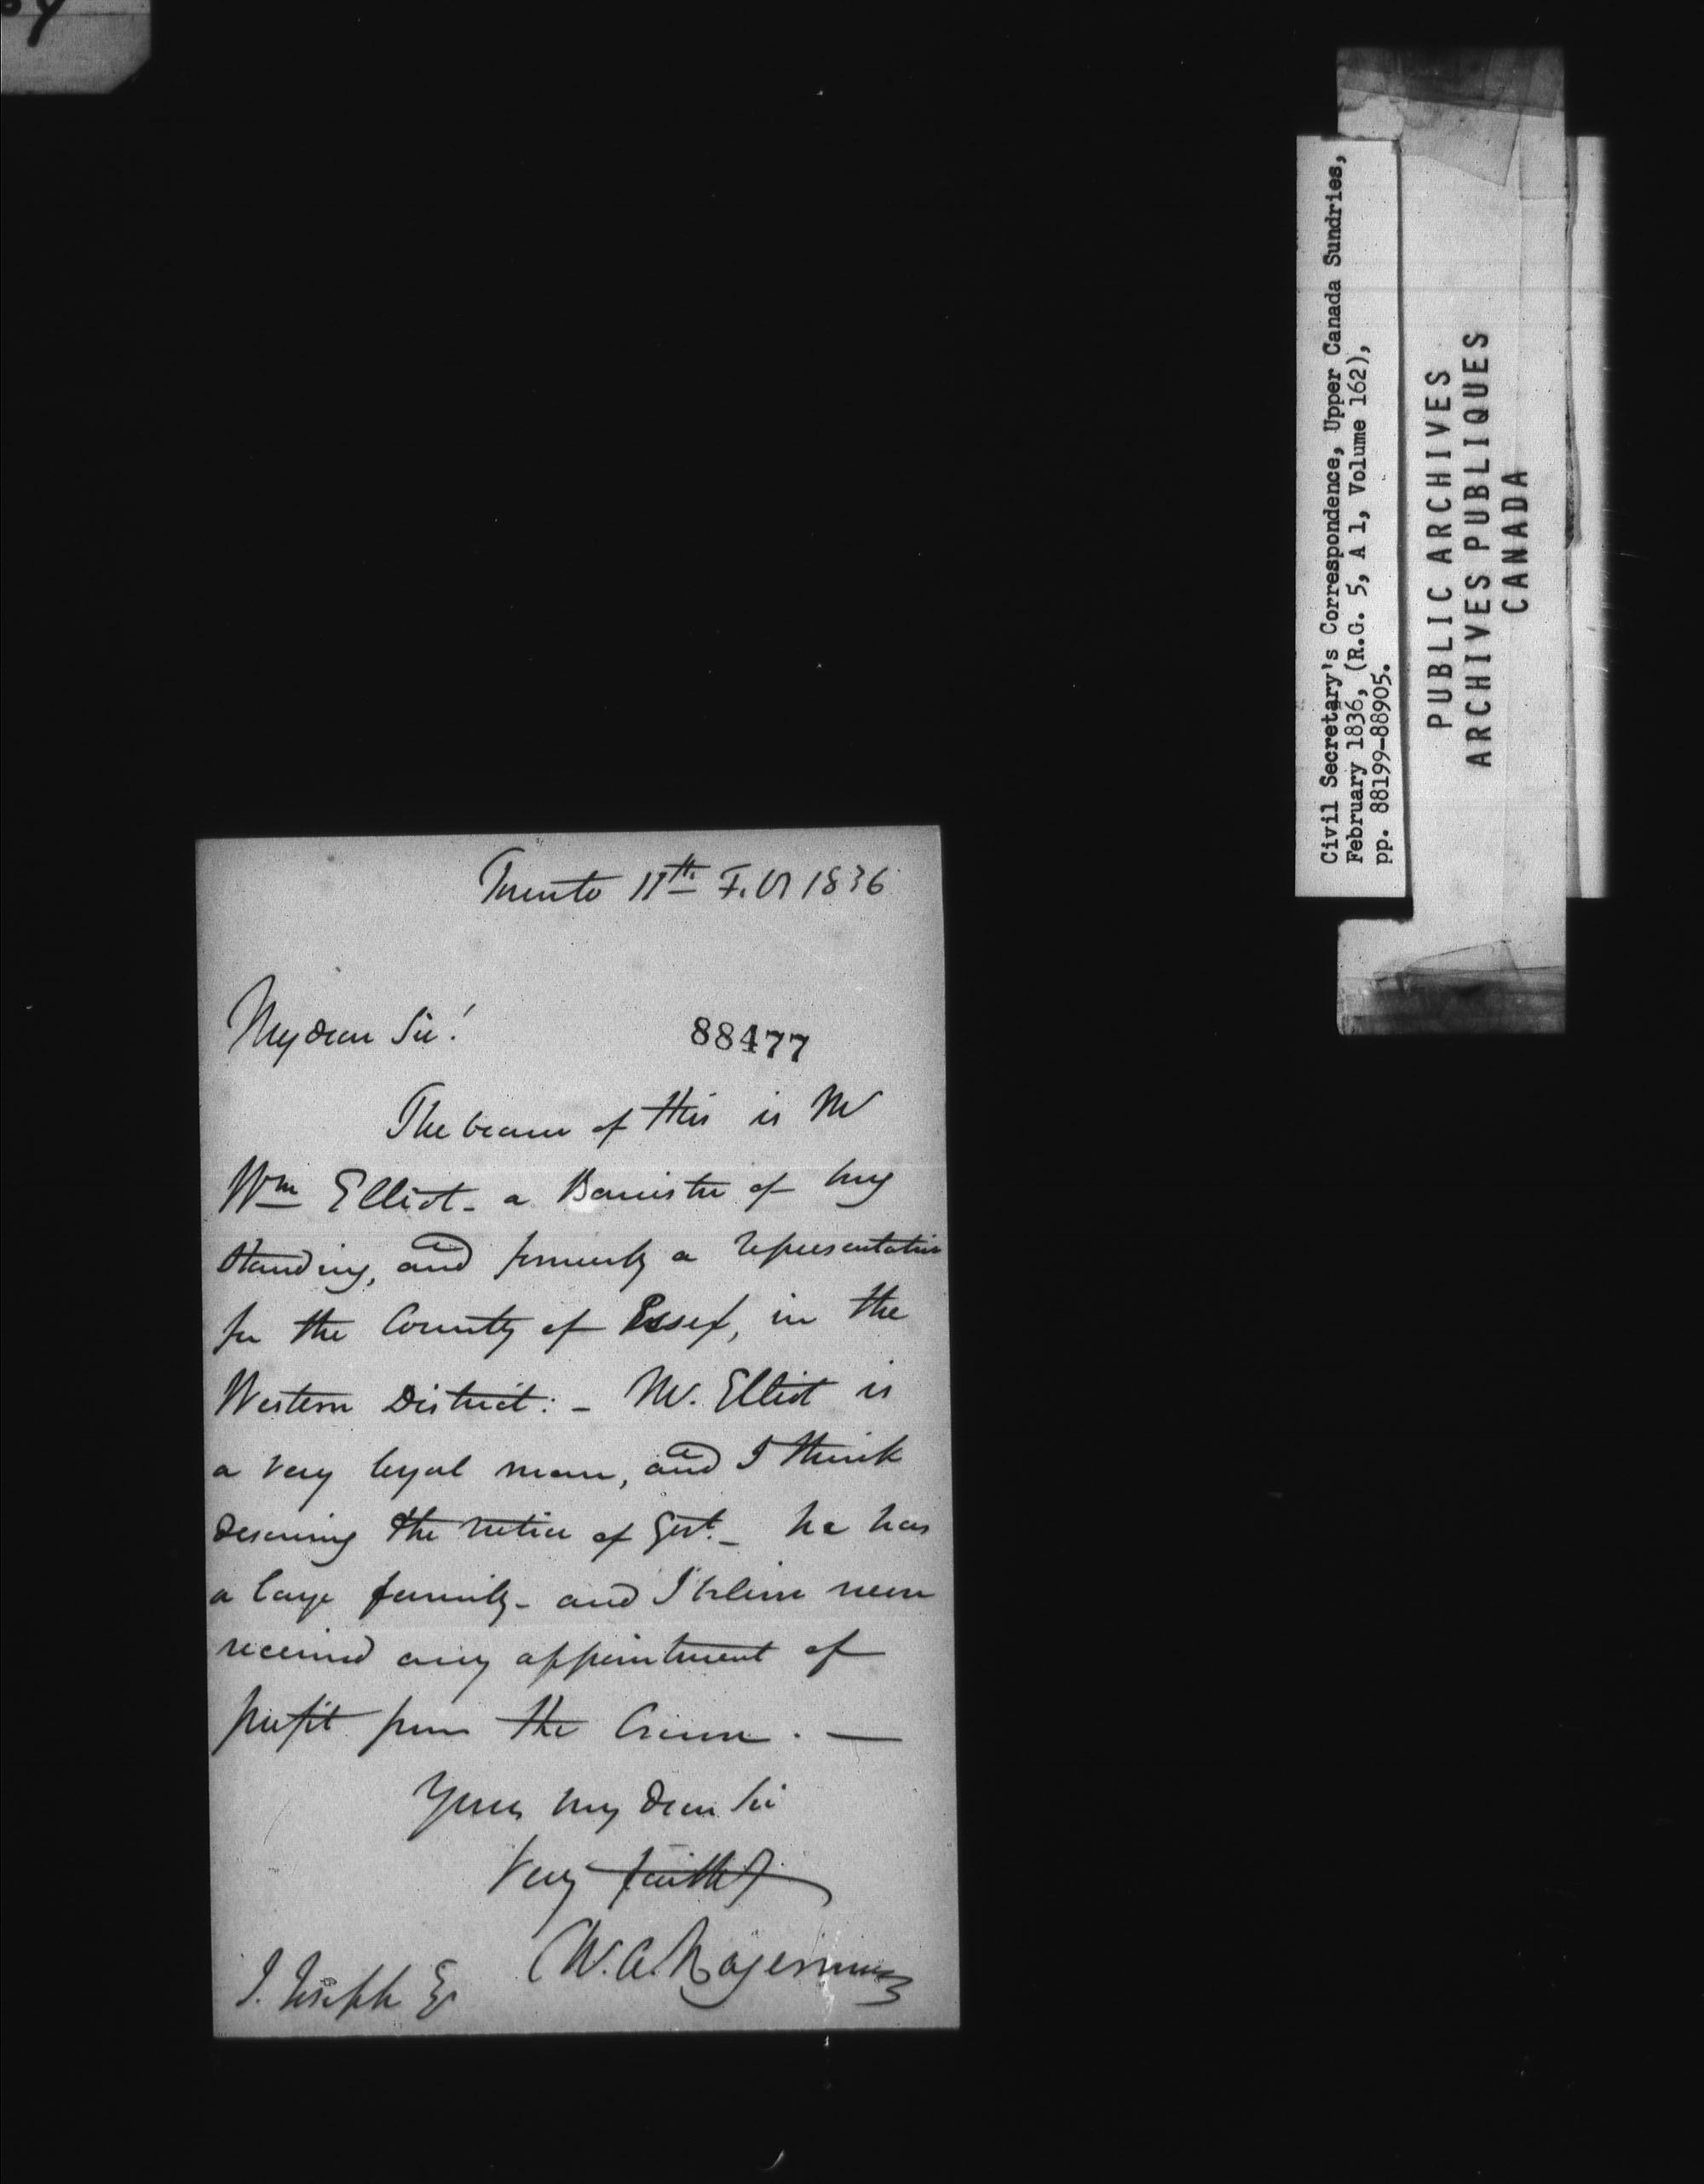 Toronto 11th Feb 1836
My dear Sir!
88477
The bearer of this is Mr
Wm Elliot - a Barrister of long
standing, and formerly a representative
for the County of Essex, in the
Western District: - Mr. Elliot is
a very loyal man, and I think
deserving the notice of Govt. - he has
a large family - and I believe never
received any appointment of
profit from the Crown. —
Yours my dear Sir
Very faithfy
W. A. Hagerman
J. Joseph Esq
Civil Secretary's Correspondence, Upper Canada Sundries,
February 1836, (R.G. 5, A 1, Volume 162),
pp. 88199-88905.
PUBLIC ARCHIVES
ARCHIVES PUBLIQUES
CANADA